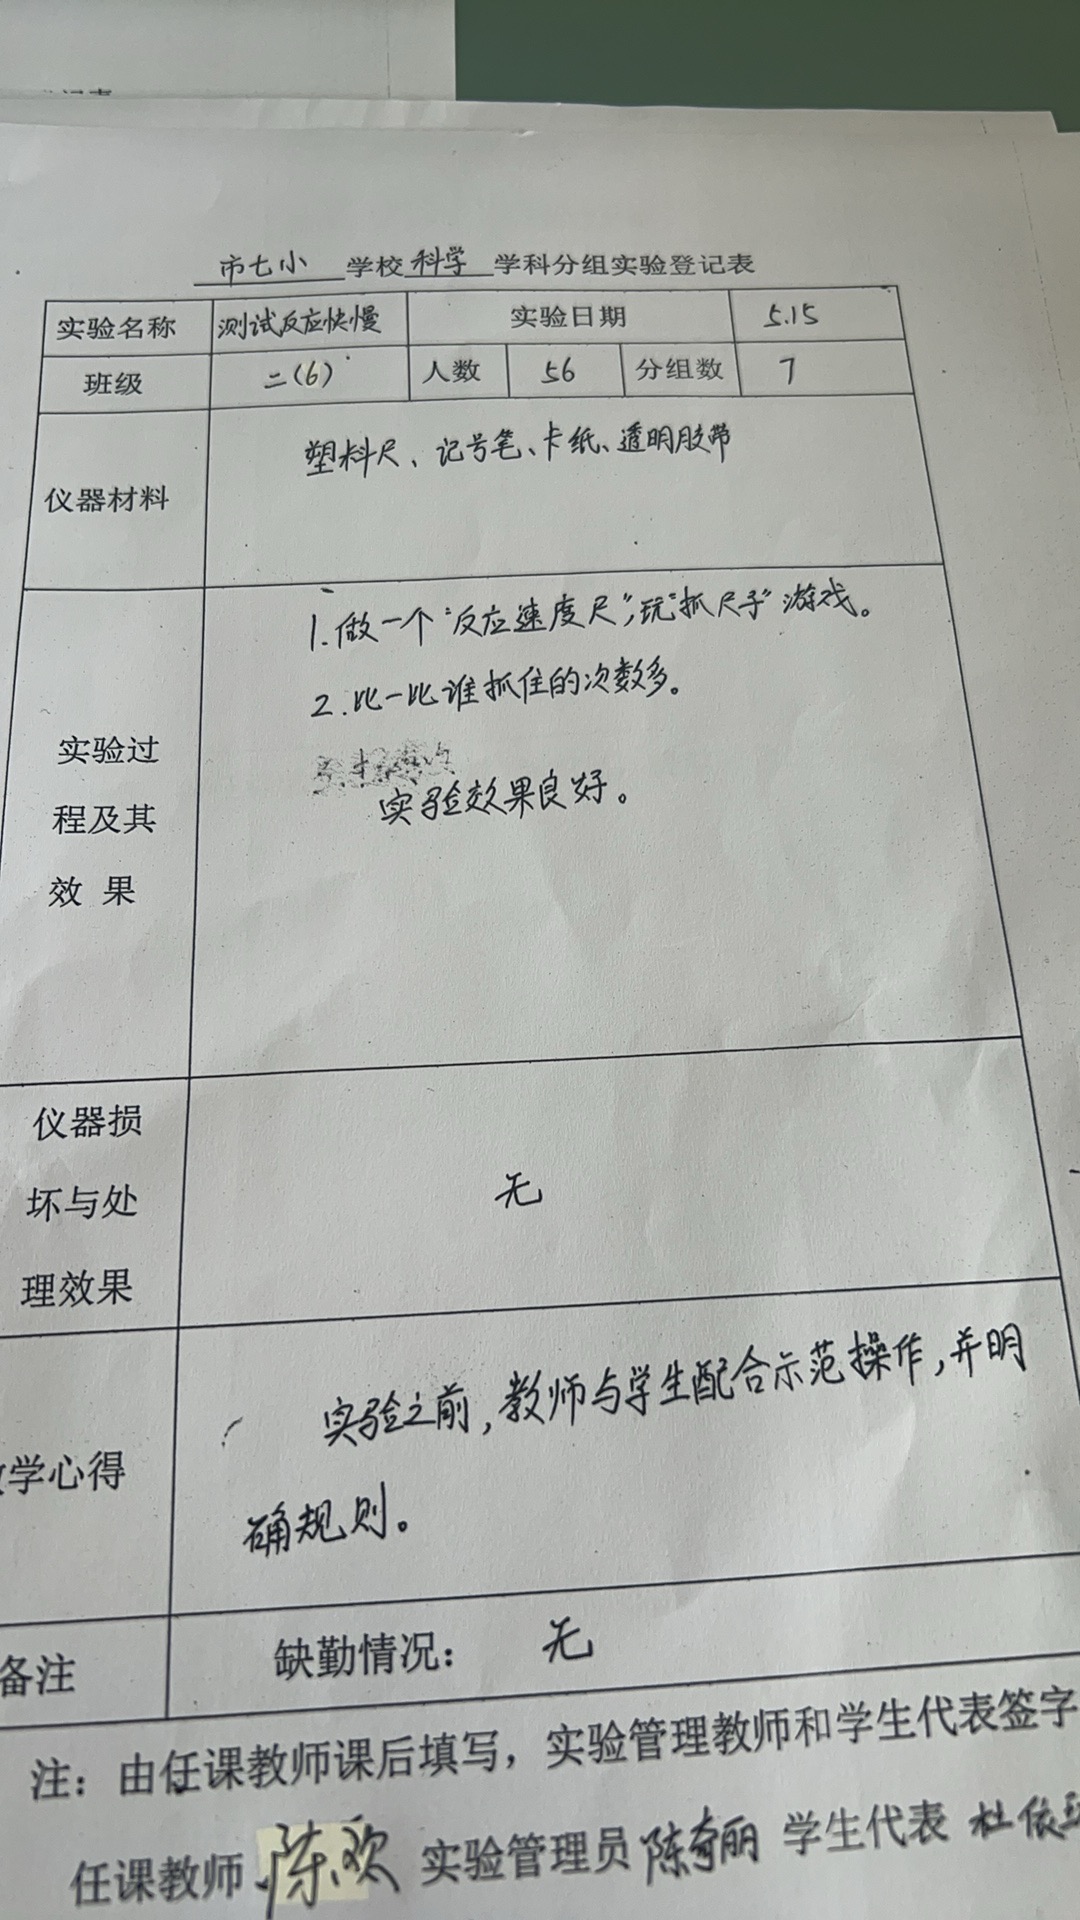 市七小 学校 科学 学科分组实验登记表
实验名称 测试反应快慢 实验日期 5.15
班级 二(6) 人数 56 分组数 7
仪器材料 塑料尺、记号笔、卡纸、透明胶带
1.做一个“反应速度尺”,玩“抓尺子”游戏。
2.比一比谁抓住的次数多。
实验效果良好。
实验过
程及其
效 果
仪器损
坏与处
理效果
无
实验之前,教师与学生配合示范操作,并明
确规则。
学心得
备注 缺勤情况: 无
注:由任课教师课后填写,实验管理教师和学生代表签字
任课教师 陈欢 实验管理员 陈奇丽 学生代表 杜依